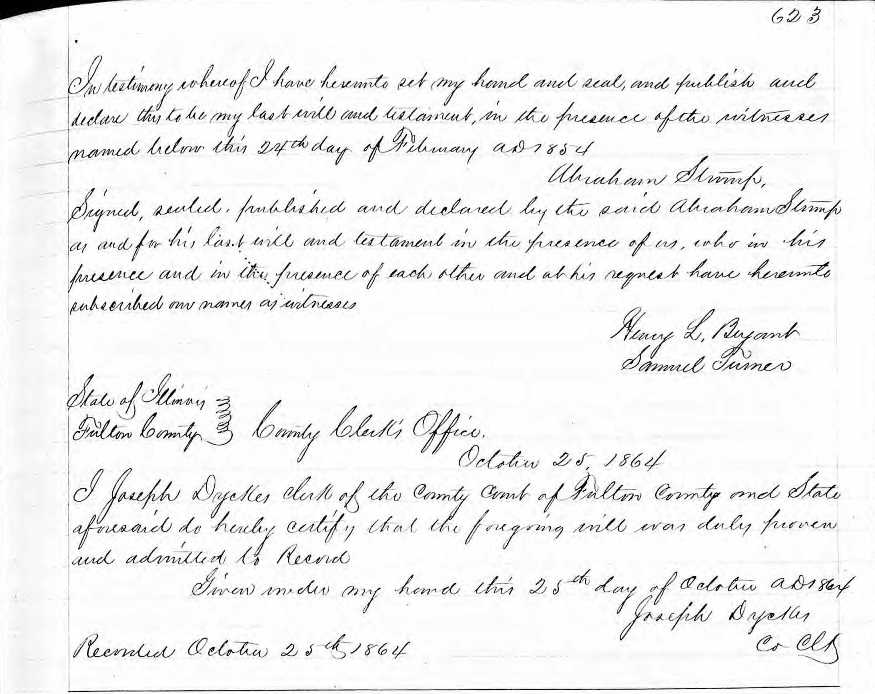 623
In testimony whereof I have hereunto set my hand and seal, and publish and
declare this to be my last will and testament, in the presence of the witnesses
named below this 24th day of February AD 1854
Abraham Stump,
Signed, sealed, published and declared by the said Abraham Stump
as and for his last will and testament in the presence of us, who in his
presence and in the presence of each other and at his request have hereunto
subscribed our names as witnesses
Henry L. Bryant
Samuel Turner
State of Illinois
Fulton County } County Clerk's Office.
October 25, 1864
I Joseph Dyckes Clerk of the County Court of Fulton County and State
aforesaid do hereby certify that the foregoing will was duly proven
and admitted to Record
Given under my hand this 25th day of October AD 1864
Joseph Dyckes
Co Clk
Recorded October 25th 1864